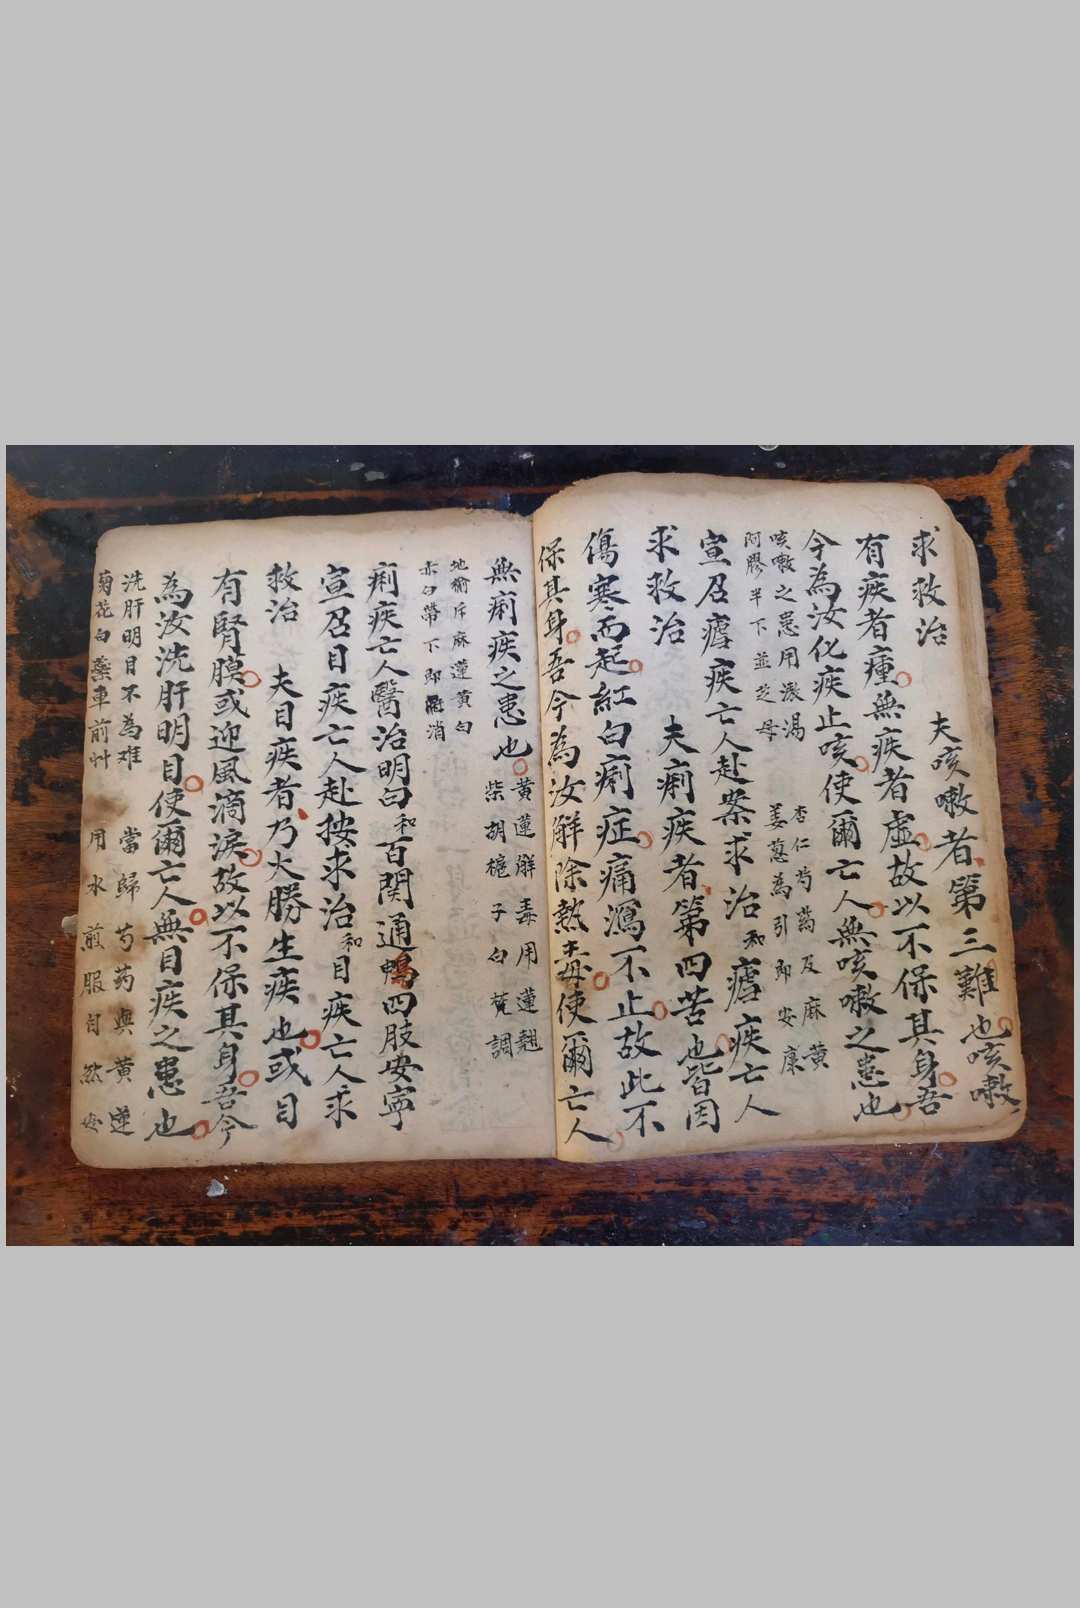 求救治　夫咳嗽者第三難也咳嗽
有疾者瘇無疾者虛故以不保其身吾
今為汝化疾止咳使爾亡人無咳嗽之患也
咳嗽之患用澂渴　杏仁芍药及麻黄
阿膠半下並芝母　姜蔥為引即安康
宣召瘧疾亡人赴案求治和瘧疾亡人
求救治　夫痢疾者第四苦也皆因
傷寒而起紅白痢症痛瀉不止故此不
保其身吾今為汝解除熱毒使爾亡人
無痢疾之患也
黃蓮解毒用蓮翹
柴胡梔子白蔻調
地榆斥麻蓮黃白
赤白帶下即消
痢疾亡人醫治明白和百関通暢四肢安寧
宣召目疾亡人赴按求治和目疾亡人求
救治　夫目疾者乃火勝生疾也或目
有腎膜或迎風滴淚故以不保其身吾今
為汝洗肝明目使爾亡人無目疾之患也
洗肝明目不為难　當歸芍药與黄蓮
菊花白蒺車前艸　用水煎服自然安